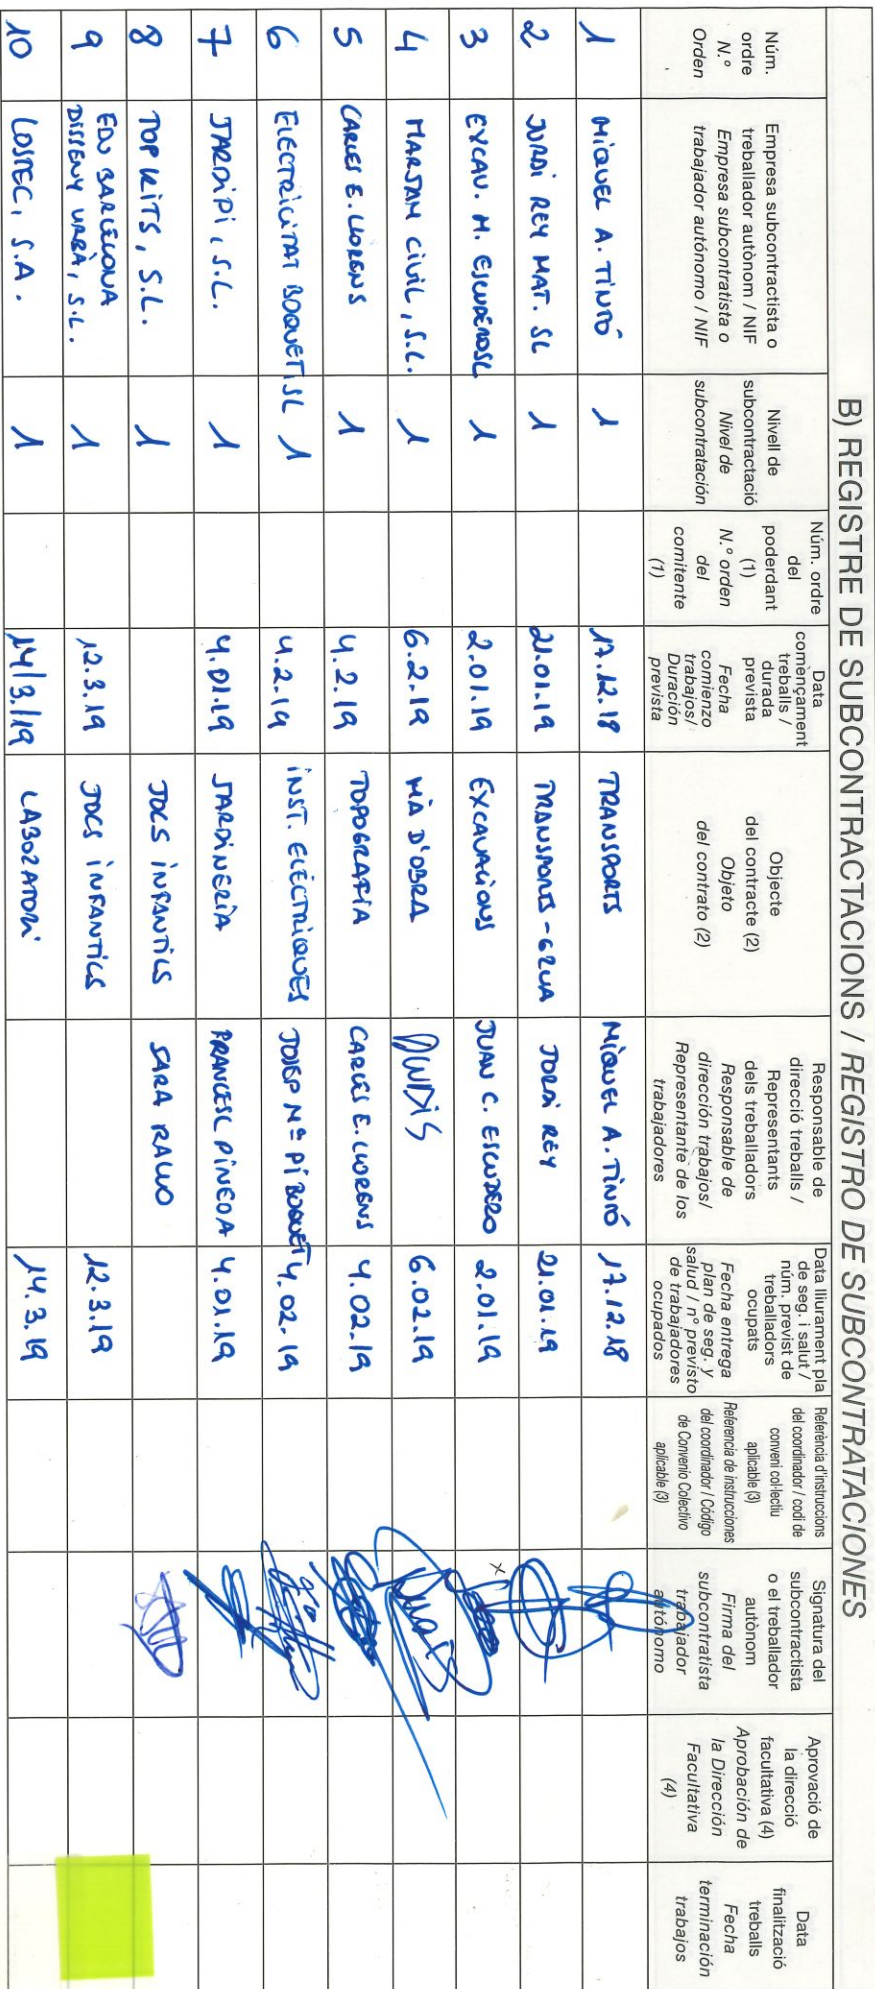 B) REGISTRE DE SUBCONTRACTACIONS / REGISTRO DE SUBCONTRATACIONES
Núm. ordre
N.º Orden
Empresa subcontractista o
treballador autònom / NIF
Empresa subcontratista o
trabajador autónomo / NIF
Nivell de
subcontractació
Nivel de
subcontratación
Núm. ordre
del
poderdant
(1)
N.º orden
del
comitente
(1)
Data
començament
treballs /
durada
prevista
Fecha
comienzo
trabajos/
Duración
prevista
Objecte
del contracte (2)
Objeto
del contrato (2)
Responsable de
direcció treballs /
Representants
dels treballadors
Responsable de
dirección trabajos/
Representante de los
trabajadores
Data lliurament pla
de seg. i salut /
núm. previst de
treballadors
ocupats
Fecha entrega
plan de seg. y
salud / nº previsto
de trabajadores
ocupados
Referència d'instruccions
del coordinador / codi de
conveni col·lectiu
aplicable (3)
Referencia de instrucciones
del coordinador / Código
de Convenio Colectivo
aplicable (3)
Signatura del
subcontractista
o el treballador
autònom
Firma del
subcontratista
trabajador
autónomo
Aprovació de
la direcció
facultativa (4)
Aprobación de
la Dirección
Facultativa
(4)
Data
finalització
treballs
Fecha
terminación
trabajos
1 MIQUEL A. TINTÓ 1 17.12.18 TRANSPORTS MIQUEL A. TINTÓ 17.12.18
2 JORDI REY MAT. SL 1 21.01.19 TRANSPORTS - GRUA JORDI REY 21.01.19
3 EXCAV. M. ESCUDERO SL 1 2.01.19 EXCAVACIONS JUAN C. ESCUDERO 2.01.19
4 MARSAM CIVIL, S.L. 1 6.2.19 MÀ D'OBRA 6.02.19
5 CARLES E. LLORENS 1 4.2.19 TOPOGRAFIA CARLES E. LLORENS 4.02.19
6 ELECTRICITAT BOQUET, SL 1 4.2.19 INST. ELÈCTRIQUES JOSEP Mª PI BOQUET 4.02.19
7 JARDIPI, S.L. 1 4.01.19 JARDINERIA FRANCESC PINEDA 4.01.19
8 TOP KITS, S.L. 1 JOCS INFANTILS SARA RALLO
9 EDU BARCELONA
DISSENY URBÀ, S.L. 1 12.3.19 JOCS INFANTILS 12.3.19
10 LOSTEC, S.A. 1 14/3/19 LABORATORI 14.3.19